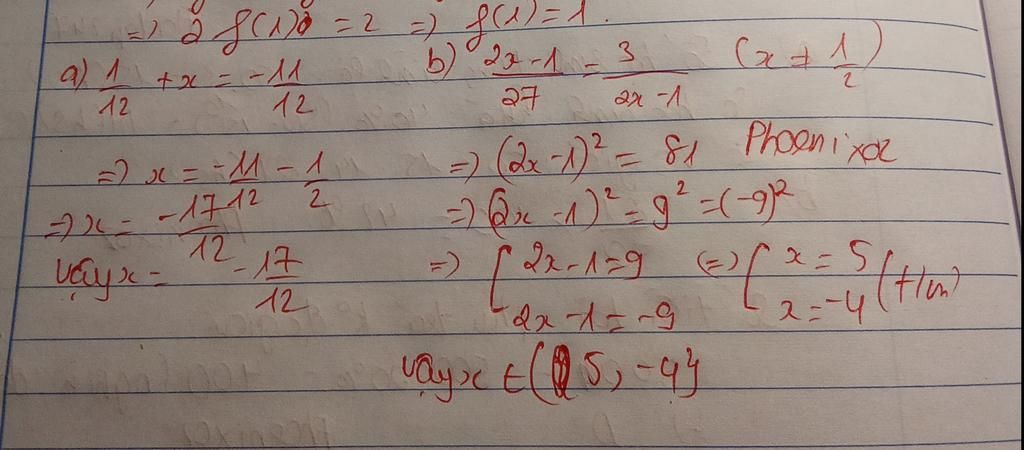 => 2 f(1) = 2 => f(1) = 1.
a) 1/12 + x = -11/12
=> x = -11/12 - 1/2
=> x = -17/12
Vậy x = -17/12
b) (2x-1)/27 = 3/(2x-1) (x ≠ 1/2)
=> (2x-1)² = 81 Phoenixoz
=> (2x-1)² = 9² = (-9)²
=> [ 2x-1=9 (=) [ x = 5
2x-1=-9 x = -4 (t/m)
Vậy x ∈ {5; -4}